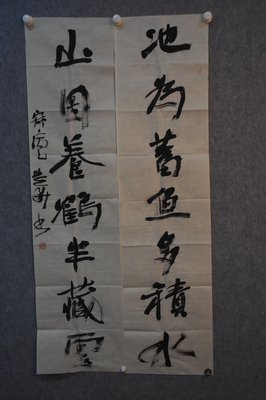 池為蓄魚多積水
山因養鶴半藏雲
書